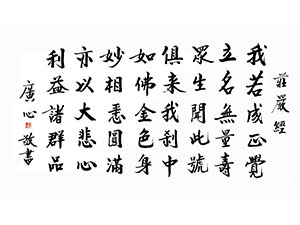 莊嚴經
我若成正覺
立名無量壽
眾生聞此號
俱來我剎中
如佛金色身
妙相悉圓滿
亦以大悲心
利益諸群品
廣心敬書